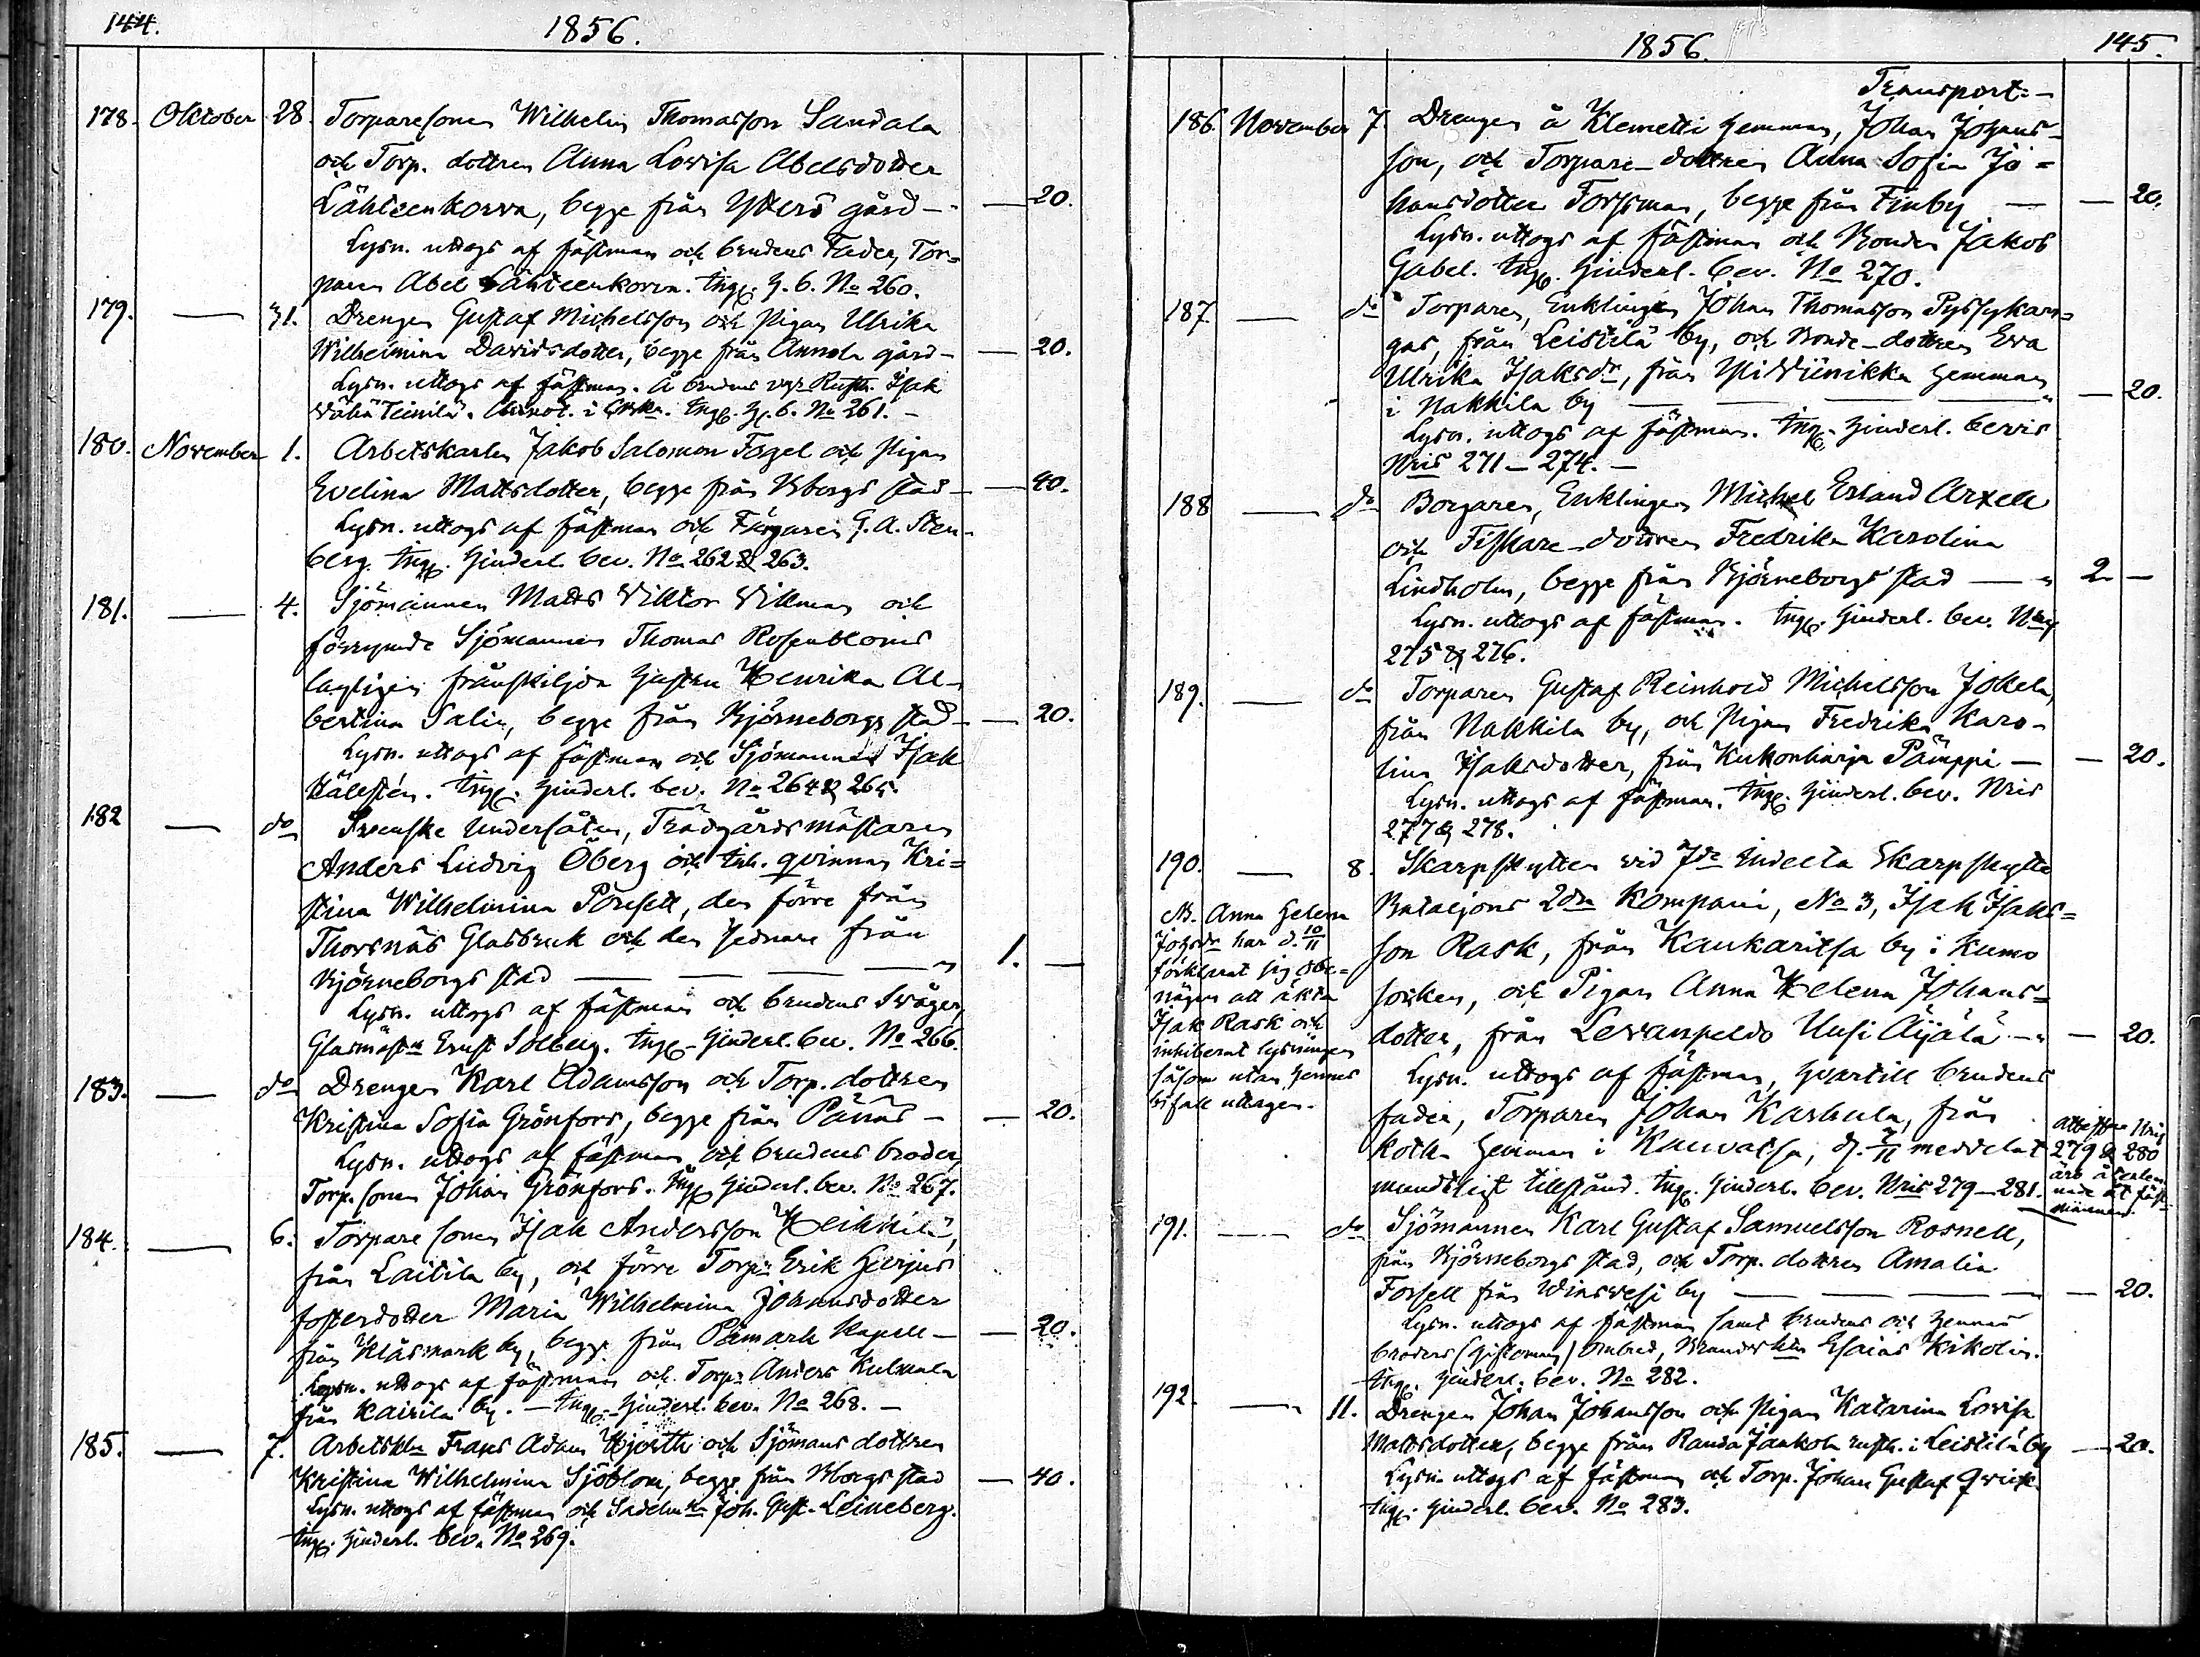 144.
1856.
178. Oktober 28. Torparesonen Wilhelm Thomasson Sandala
och Torp. dottren Anna Lovisa Abelsdotter
Lähteenkorva, begge från Ytterö gård — — 20.
Lysn. uttogs af fästman och brudens Fader, Tor-
paren Abel Lähteenkorva. Ingg. H. b. No 260.
179. — 31. Drengen Gustaf Michelsson och Pigan Ulrika
Wilhelmina Davidsdotter, begge från Annola gård — — 20.
Lysn. uttogs af fästman. Å brudens vägr Rusth. Isak
Wähä Teinilä. Ingg. H. b. No 261. —
180. November 1. Arbetskarlen Jakob Salomon Fogel och Pigan
Evelina Mattsdotter, begge från Bborgs stad — — 40.
Lysn. uttogs af fästman och Färgaren G. A. Sten-
berg. Ingg. Hinderl. bev. No 262 & 263.
181. — 4. Sjömannen Matts Viktor Villman och
förrymde Sjömannen Thomas Rosenbloms
lagligen frånskiljda hustru Henrika Al-
bertina Salin, begge från Björneborgs stad — — 20.
Lysn. uttogs af fästman och Sjömannen Isak
Källstén. Ingg. Hinderl. bev. No 264 & 265.
182 — do Svenske Undersåten, Trädgårdsmästaren
Anders Ludvig Öberg och tjh. qvinnan Kri-
stina Wilhelmina Forsell, den förre från
Thorsnäs Glasbruk och den sednare från
Björneborgs stad — — — 1. —
Lysn. uttogs af fästman och brudens Svåger,
Glasmäst. Ernst Solberg. Ingg. Hinderl. bev. No 266.
183. — do Drengen Karl Adamsson och Torp. dottren
Kristina Sofia Grönfors, begge från Pånäs — — 20.
Lysn. uttogs af fästman och brudens broder,
Torp. sonen Johan Grönfors. Ingg. Hinderl. bev. No 267.
184. — 6. Torpare sonen Isak Andersson Heikkilä,
från Laitila by, och förre Torp. Erik Herjus
fosterdotter Maria Wilhelmina Johansdotter
från Klåsmark by, begge från Påmark Kapell — — 20.
Lysn. uttogs af fästman och Torp. Anders Kulmala
från Kairila by. — Ingg. Hinderl. bev. No 268. —
185. — 7. Arbetskln Frans Adam Hjorth och Sjömans dottren
Kristina Wilhelmina Sjöblom, begge från Bborgs stad — 40.
Lysn. uttogs af fästman och Sadelmr Joh. Gust. Leineberg.
Ingg. Hinderl. bev. No 269.
1856.
145.
Transport: —
186. November 7. Drengen å Klemetti hemman, Johan Johans-
son, och Torpare-dottren Anna Sofia Jo-
hansdotter Forsman, begge från Finby — — 20.
Lysn. uttogs af fästman och Bonden Jakob
Gabel. Ingg. Hinderl. bev. No 270.
187. — do Torparen, Enklingen Johan Thomasson Pyssykan-
gas, från Leistilä by, och Bonde-dottren Eva
Ulrika Isaksdr, från Yli Viinikka hemman
i Nakkila by — — — — 20.
Lysn. uttogs af fästman. Ingg. Hinderl. bevis
Nris 271 — 274. —
188 — do Borgaren, Enklingen Michel Erland Arxell
och Fiskare-dottren Fredrika Karolina
Lindholm, begge från Björneborgs stad — 2 —
Lysn. uttogs af fästman. Ingg. Hinderl. bev. Nris
275 & 276.
189. — do Torparen Gustaf Reinhold Michelsson Jokela,
från Nakkila by, och Pigan Fredrika Karo-
lina Isaksdotter, från Kukonharja Pämppi — — 20.
Lysn. uttogs af fästman. Ingg. Hinderl. bev. Nris
277 & 278.
190. — 8. Skarpskytten vid 7de Indelta Skarpskytte
Bataljons 2dra Kompani, No 3, Isak Isaks-
son Rask, från Kaukaritsa by i Kumo
socken, och Pigan Anna Helena Johans-
dotter, från Levanpeldo Uusi Äijälä — — 20.
Lysn. uttogs af fästman, hvartill brudens
fader, Torparen Johan Karhula, från
Koth. hemman i Kauvatsa, d. 7/11 meddelat
mundtligt tillstånd. Ingg. Hinderl. bev. Nris 279—281.
NB. Anna Helena
Johsdr har d. 10/11
förklarat sig obe-
nägen att äkta
Isak Rask och
inhiberat lysningen
såsom utan hennes
bifall uttagen.
Attesterne Nris
279 & 280
äro återlem-
nade åt fäst-
mannen.
191. — do Sjömannen Karl Gustaf Samuelsson Rosnell,
från Björneborgs stad, och Torp. dottren Amalia
Forsell från Winsvesi by — — — — 20.
Lysn. uttogs af fästman samt brudens och hennes
broders (Giftoman) Ombud, Esaias Kikolin.
Ingg. Hinderl. bev. No 282.
192. — 11. Drengen Johan Johansson och Pigan Katarina Lovisa
Mattsdotter, begge från Randa Jaakola rusth. i Leistilä by — 20.
Lysn. uttogs af fästman och Torp. Johan Gustaf Qvick.
Ingg. Hinderl. bev. No 283.